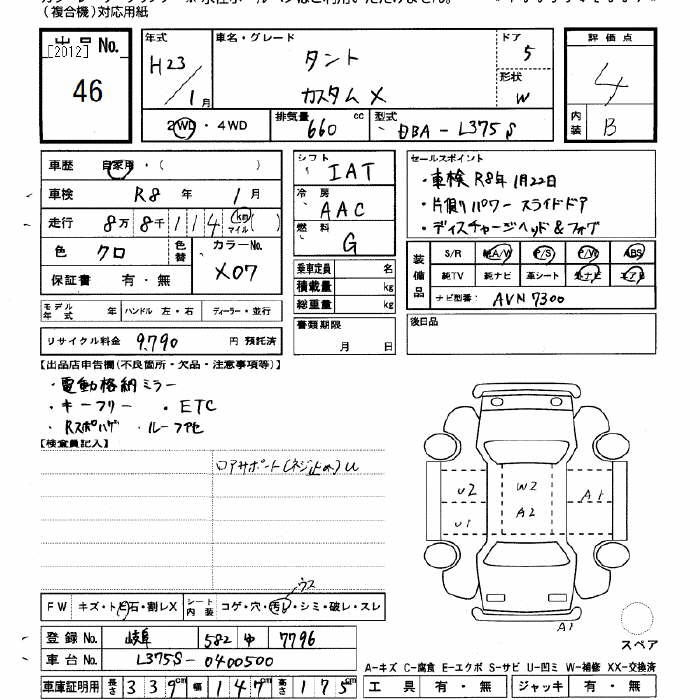 (複合機)対応用紙
出品No.
[2012]
46
年式
H23/1月
車名・グレード
タント
カスタムX
ドア
5
形状
W
評価点
4
内装
B
2WD・4WD
排気量
660 cc
型式
DBA-L375S
車歴 自家用・( )
車検 R8年 1月
走行 8万8千114 km マイル ( )
色 クロ
色替
カラーNo.
X07
保証書 有・無
モデル年式 年
ハンドル 左・右
ディーラー・並行
リサイクル料金 9,790 円 預託済
シフト
IAT
冷房
AAC
燃料
G
乗車定員 名
積載量 kg
総重量 kg
書類期限
月 日
セールスポイント
・車検 R8年 1月22日
・片側パワースライドドア
・ディスチャージヘッド&フォグ
装備品
S/R 純A/W P/S P/W ABS
純TV 純ナビ 革シート 社外ナビ エアB
ナビ型番: AVN7300
後日品
【出品店申告欄(不良箇所・欠品・注意事項等)】
・電動格納ミラー
・キーフリー ・ETC
・Rスポイラ ・ルーフアセ
【検査員記入】
コアサポート(ネジ止め)U
U2
U1
W2
A2
A1
A1
ウス
FW キズ・トビ石・割レX
シート内装 コゲ・穴・汚レ・シミ・破レ・スレ
登録No. 岐阜 582 ゆ 7796
車台No. L375S-0400500
車庫証明用 長さ 339cm 幅 147cm 高さ 175cm
スペア
A-キズ C-腐食 E-エクボ S-サビ U-凹ミ W-補修 XX-交換済
工具 有・無 ジャッキ 有・無